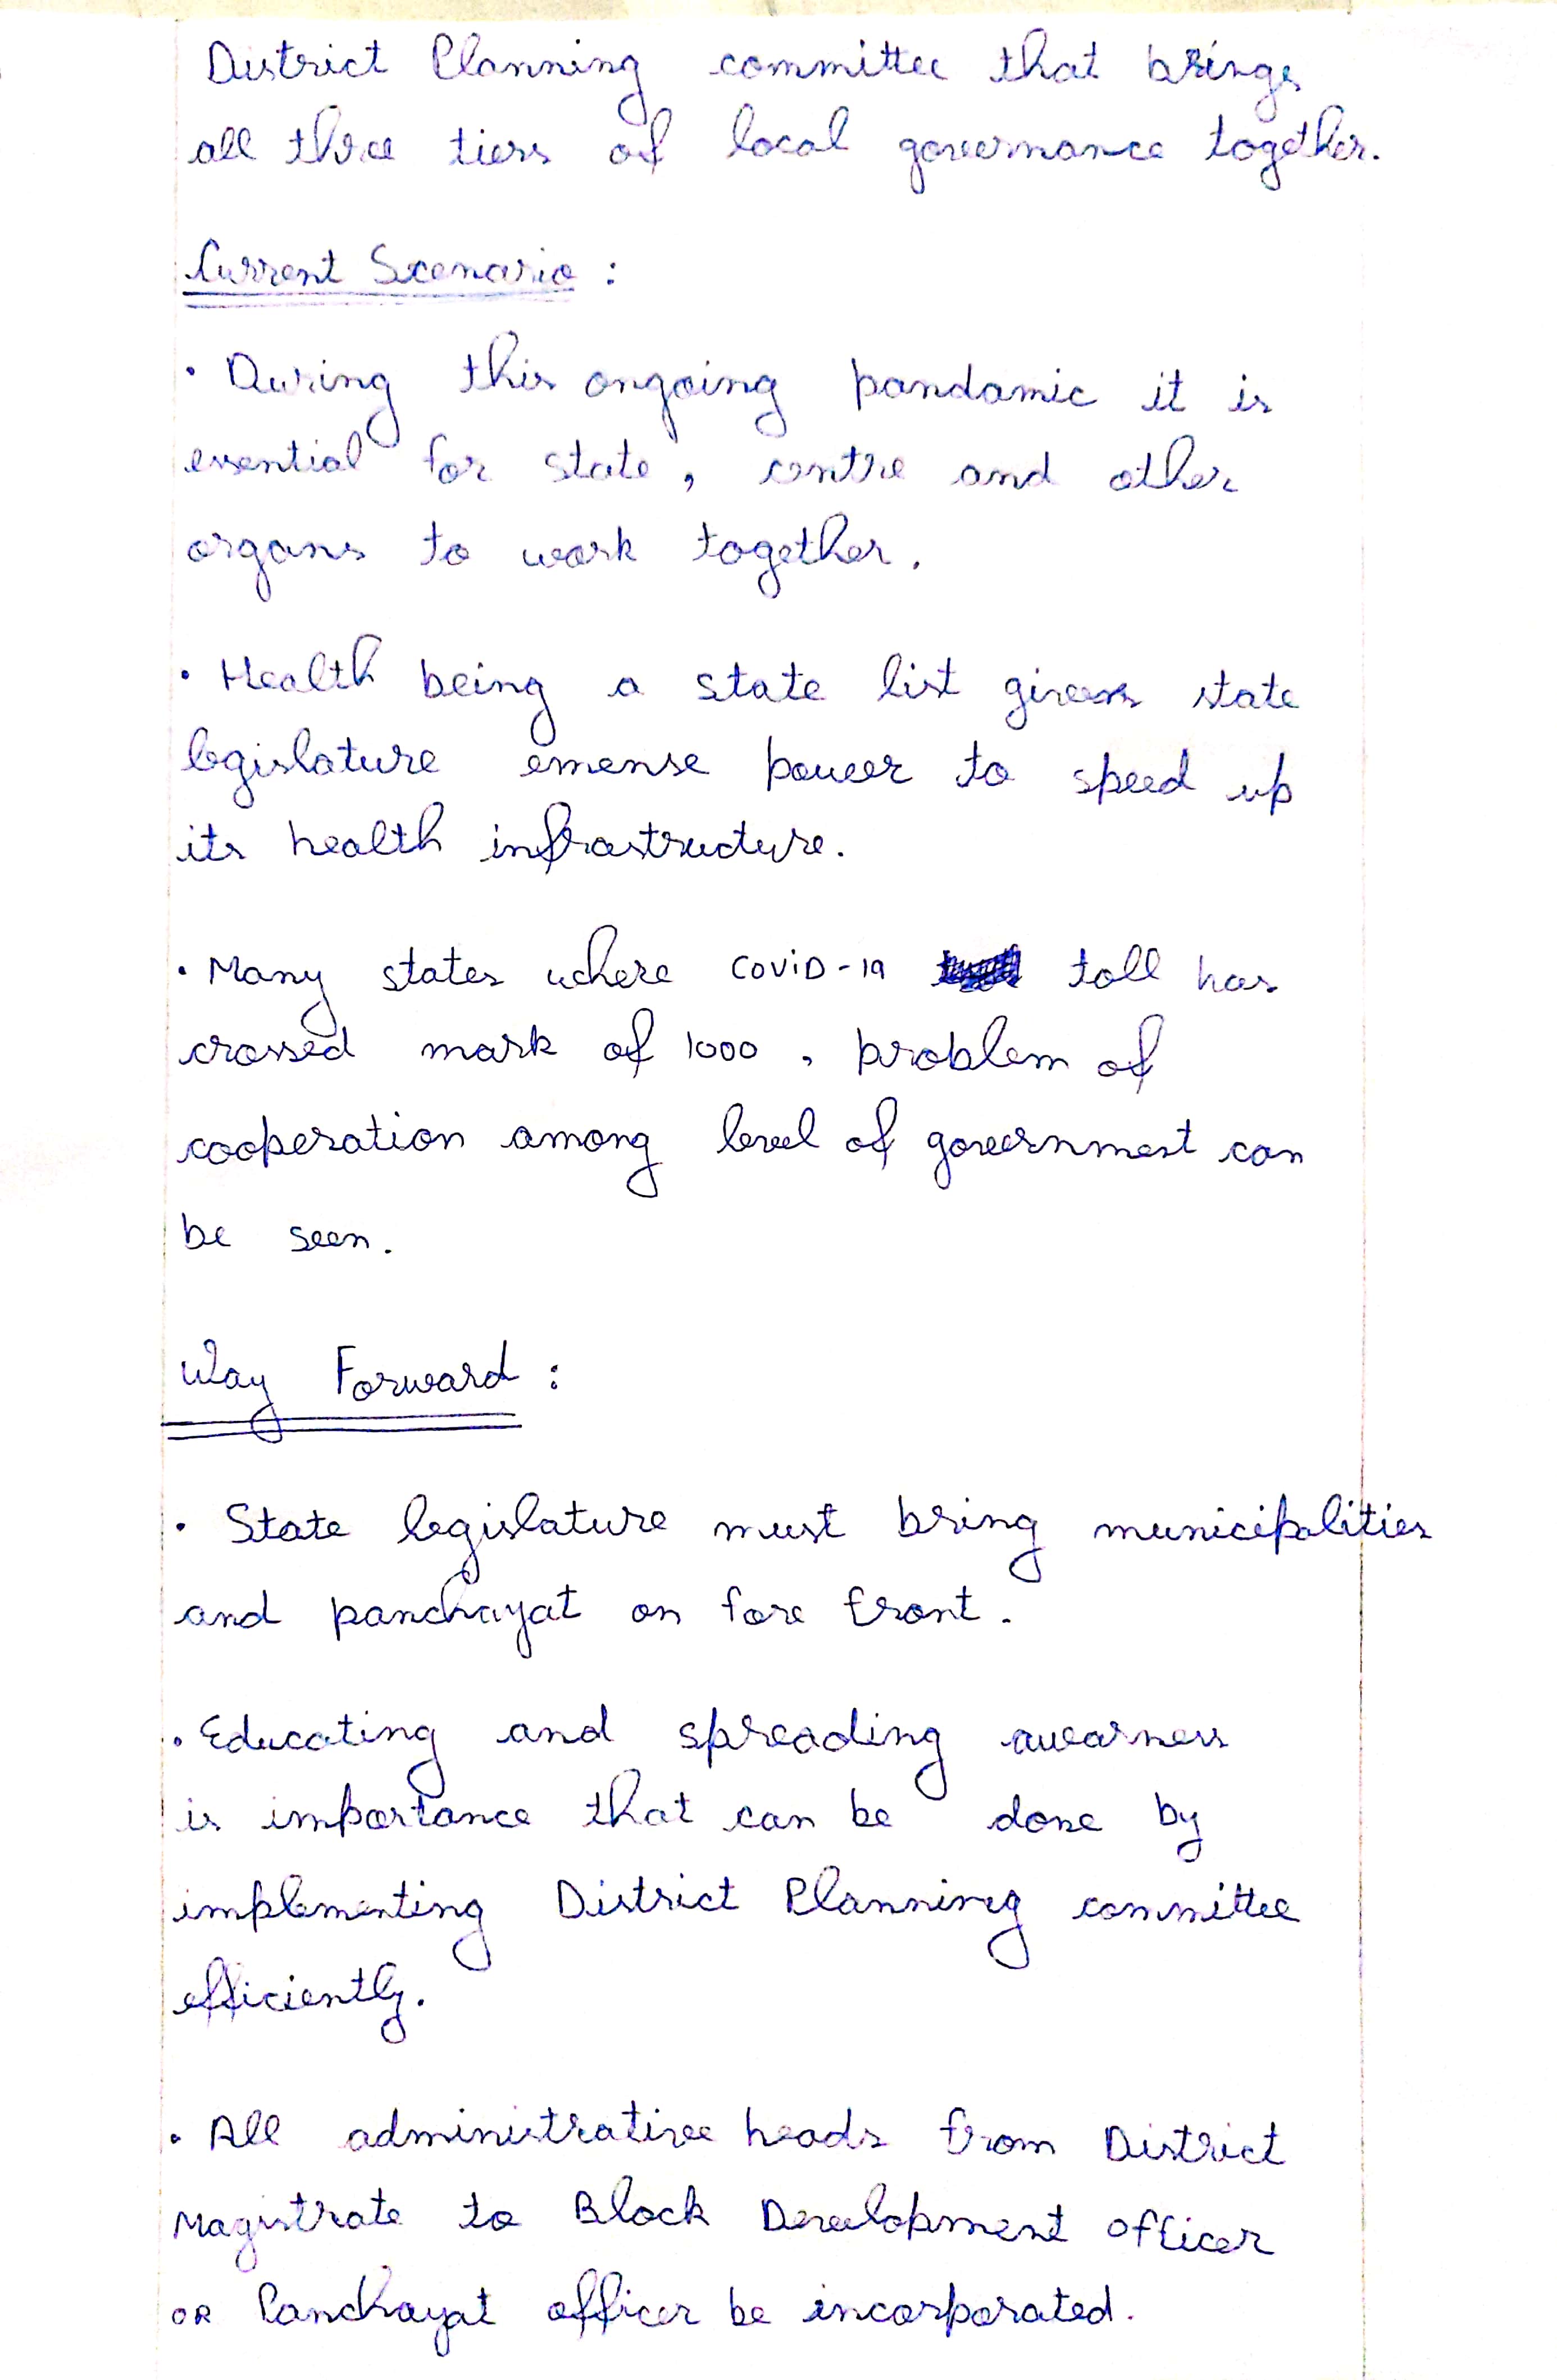 District Planning committee that brings
all three tiers of local governance together.
Current Scenario :
• During this ongoing pandamic it is
essential for state, centre and other
organs to work together.
• Health being a state list gives state
legislature emense power to speed up
its health infrastructure.
• Many states where COVID-19 toll has
crossed mark of 1000, problem of
cooperation among level of government can
be seen.
Way Forward :
• State legislature must bring municipalities
and panchayat on fore front.
• Educating and spreading awarness
is importance that can be done by
implementing District Planning committee
efficiently.
• All administrative heads from District
Magistrate to Block Development officer
OR Panchayat officer be incorporated.